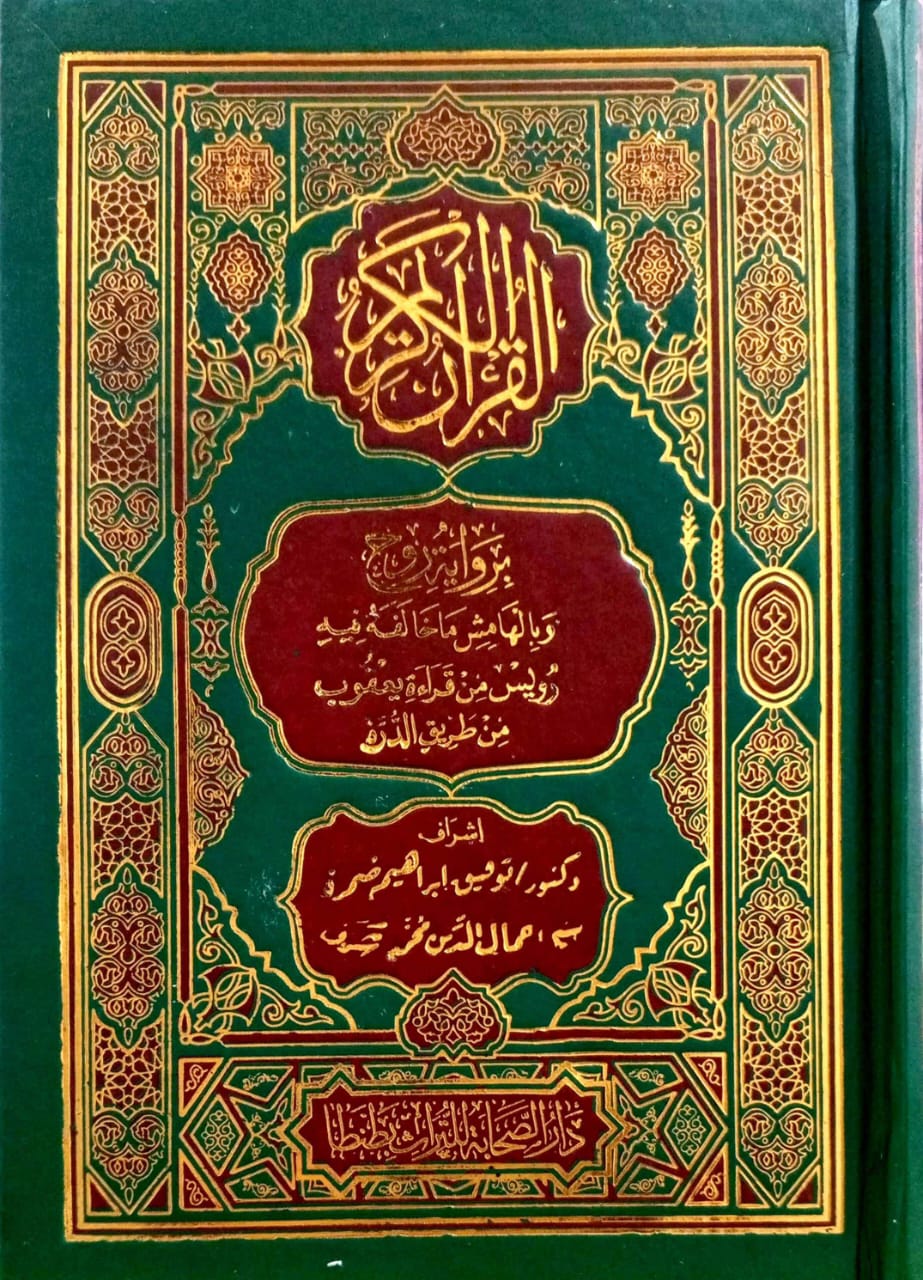 القرآن الكريم
برواية روح
وبالهامش ما خالفه فيه
رويس من قراءة يعقوب
من طريق الدرة
إشراف
دكتور / توفيق إبراهيم ضمرة
جمال الدين محمد شرف
دار الصحابة للتراث بطنطا